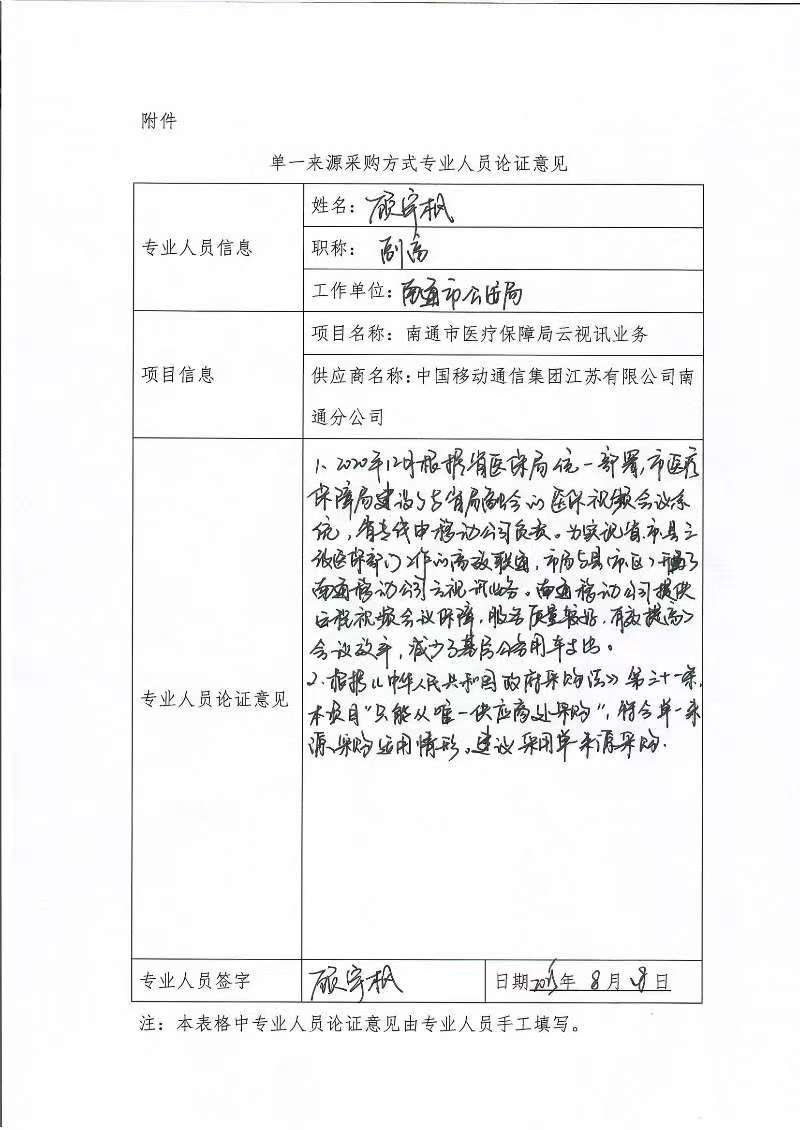 附件
单一来源采购方式专业人员论证意见
专业人员信息
姓名：顾宇枫
职称：副高
工作单位：南通市公安局
项目信息
项目名称：南通市医疗保障局云视讯业务
供应商名称：中国移动通信集团江苏有限公司南
通分公司
专业人员论证意见
1、2020年12月根据省医保局统一部署，市医疗
保障局建设了与省局融合的医保视频会议系
统，省专线由移动公司负责。为实现省、市、县三
级医保部门工作的高效联通，市局与县（市、区）开通了
南通移动公司云视讯业务。南通移动公司提供
云视视频会议保障，服务质量较好，有效提高了
会议效率，减少了基层公务用车支出。
2、根据《中华人民共和国政府采购法》第三十一条，
本项目“只能从唯一供应商处采购”，符合单一来
源采购适用情形。建议采用单一来源采购.
专业人员签字
顾宇枫
日期 年 8 月 日
注：本表格中专业人员论证意见由专业人员手工填写。